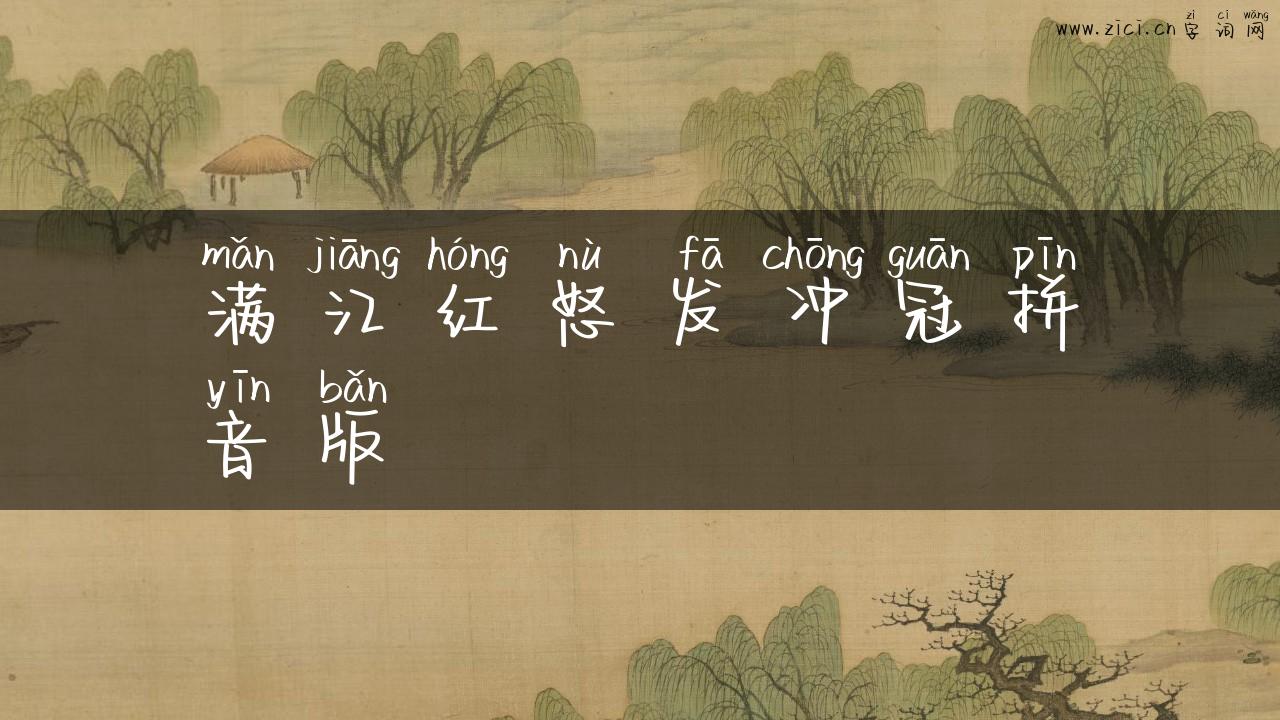 zì cí wǎng
www.zici.cn 字 词 网
mǎn jiāng hóng nù fā chōng guān pīn
满 江 红 怒 发 冲 冠 拼
yīn bǎn
音 版